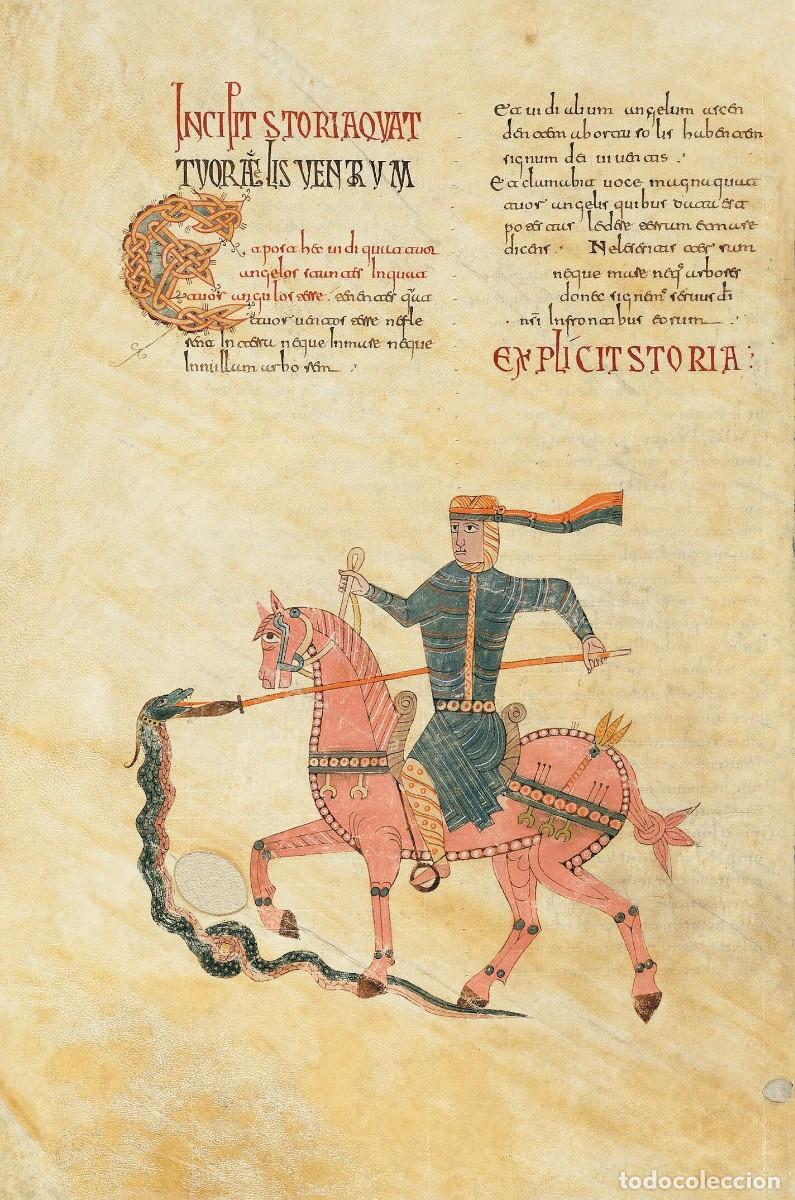 INCIPIT STORIA QVAT
TVOR AṄLIS VENTRVM
Et post hec uidi quattuor
angelos stantes In quat
tuor angulos terre. tenentes quat
tuor uentos terre ne fle
rent In terra neque In mare neque
In nullam arborem
Et uidi alium angelum ascen
dentem ab ortu solis habentem
signum dei uiuentis.
Et clamabit uoce magna quat
tuor angelis quibus datu est
potestas ledere terram et mare
dicens. Ne leseritis terram
neque mare neq. arbores
donec signem seruus dī
nsī In frontibus eorum
EXPLICIT STORIA:
todocoleccion